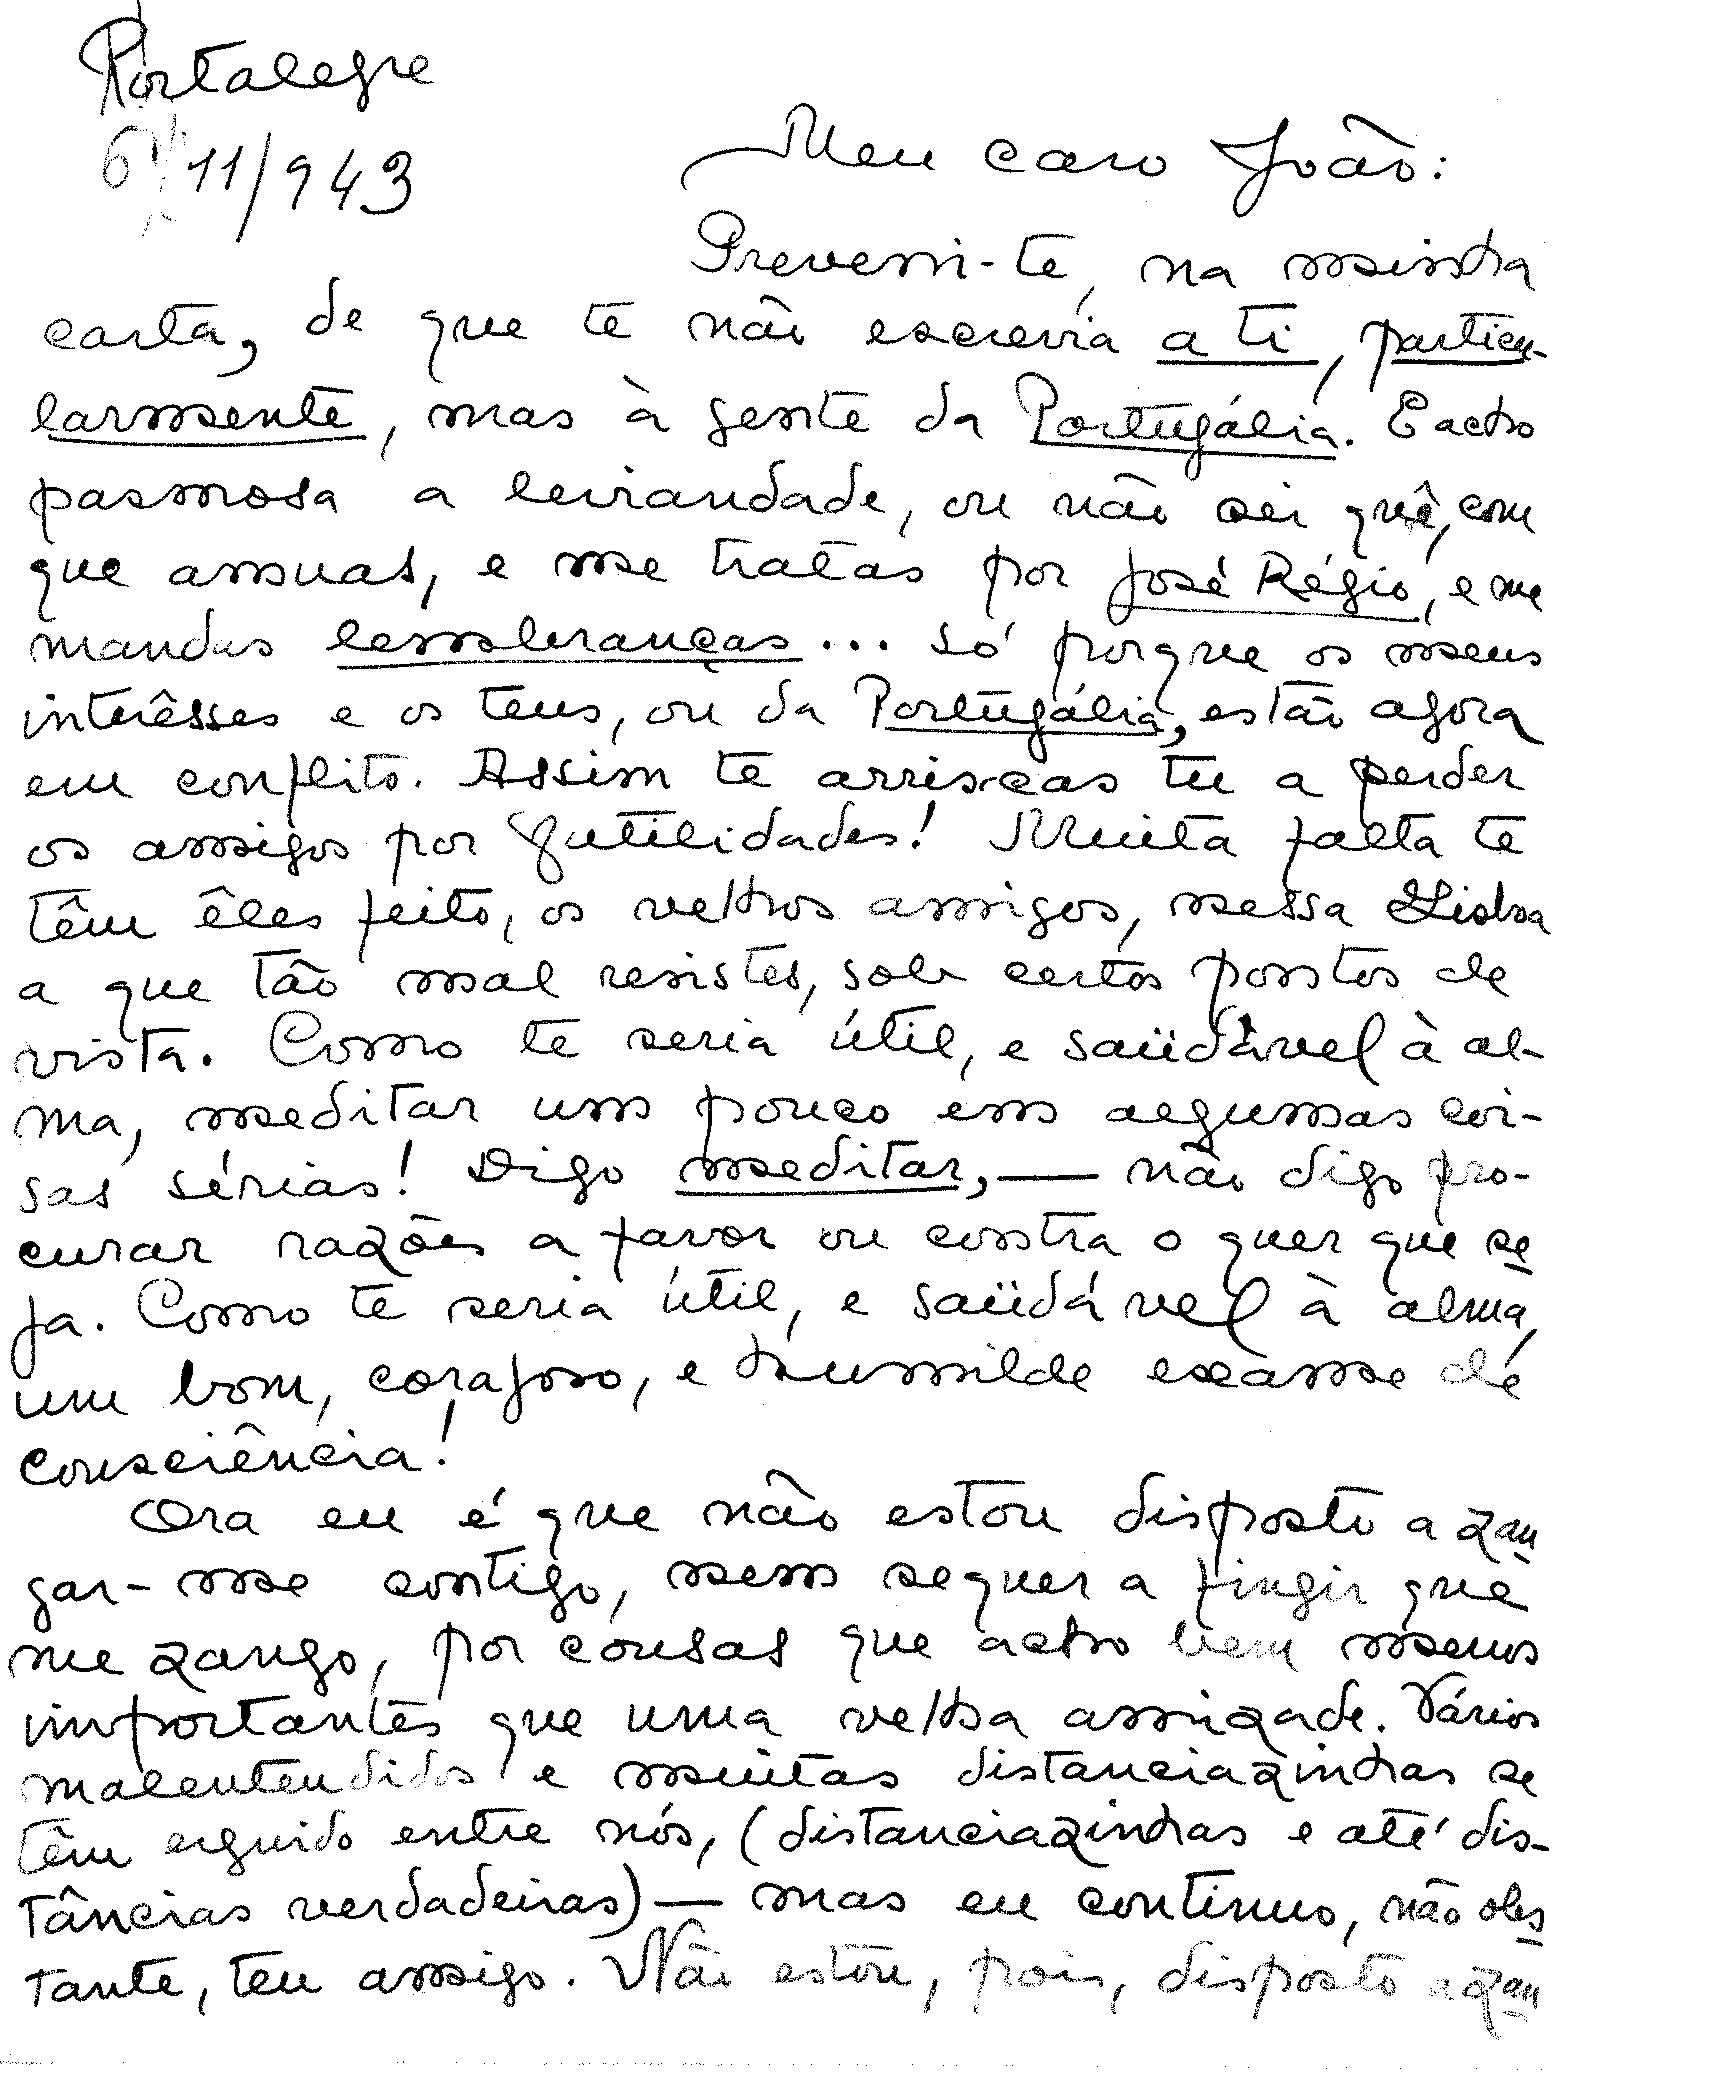 Portalegre
6/11/943
Meu caro João:
Preveni-te, na minha
carta, de que te não escrevia a ti, particu-
larmente, mas à gente da Portugália. E acho
pasmosa a leviandade, ou não sei quê, com
que amuas, e me tratas por José Régio, e me
mandas lembranças... só porque os meus
interêsses e os teus, ou da Portugália, estão agora
em conflito. Assim te arriscas tu a perder
os amigos por futilidades! Muita falta te
têm êles feito, os velhos amigos, nessa Lisboa
a que tão mal resistes, sob certos pontos de
vista. Como te seria útil, e saüdável à al-
ma, meditar um pouco em algumas coi-
sas sérias! Digo meditar, — não digo pro-
curar razões a favor ou contra o quer que se
ja. Como te seria útil, e saüdável à alma,
um bom, corajoso, e humilde exame de
consciência!
Ora eu é que não estou disposto a zan
gar-me contigo, nem sequer a fingir que
me zango, por cousas que acho bem menos
importantes que uma velha amizade. Vários
malentendidos e muitas distanciazinhas se
têm erguido entre nós, (distanciazinhas e até dis-
tâncias verdadeiras) — mas eu continuo, não obs
tante, teu amigo. Não estou, pois, disposto a zan